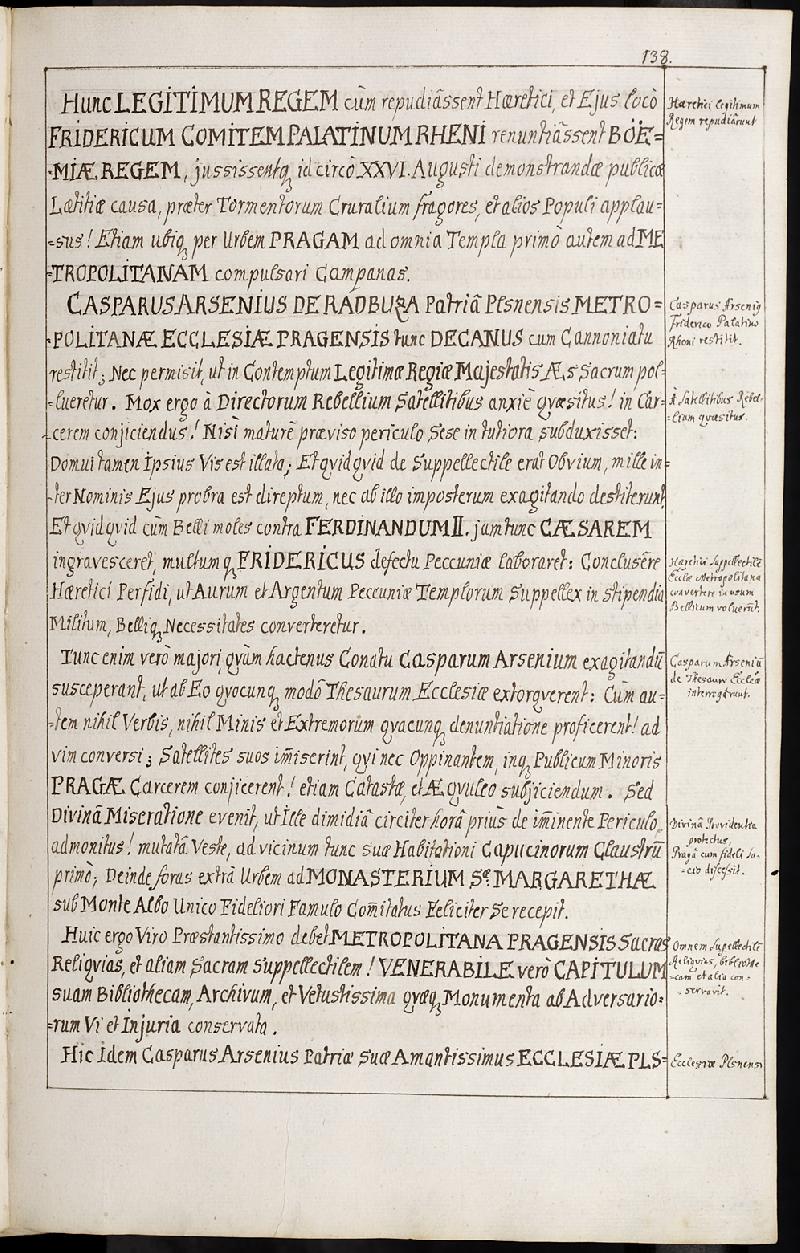 138.
Hunc LEGITIMUM REGEM cùm repudiâssent Hæretici, et Ejus locô
FRIDERICUM COMITEM PALATINUM RHENI renuntiâssent BOË=
=MIÆ REGEM, jussissentq₃ id circò XXVI. Augusti demonstrandæ publicæ
Lætitiæ causa, præter Tormentorum Cruralium fragores, et alios Populi applau=
=sus! Etiam ubiq₃ per Urbem PRAGAM ad omnia Templa primò autem ad ME
=TROPOLITANAM compulsari Campanas.
CASPARUS ARSENIUS DE RADBUZA Patriâ Plsnensis METRO=
=POLITANÆ ECCLESIÆ PRAGENSIS tunc DECANUS cum Cannoniatu
restitit; Nec permisit, ut in Contemptum Legitimæ Regiæ Majestatis Æs Sacrum pol=
=lueretur. Mox ergo à Directorum Rebellium Satellitibus anxiè qvæsitus! in Car=
=cerem conjiciendus! Nisi maturè præviso periculo Sese in tutiora subduxisset:
Domui tamen Ipsius Vis est illata; Et qvidqvid de Suppellectile erat Obvium, mille in=
=ter Nominis Ejus probra est direptum, nec ab illo imposterum exagitando destiterunt
Et qvidqvid cùm Belli moles contra FERDINANDUM II. jam tunc CÆSAREM
ingravesceret, multumq₃ FRIDERICUS defectu Peccuniæ laboraret: Conclusêre
Hæretici Perfidi, ut Aurum et Argentum Peccuniæ Templorum Suppellex in stipendia
Militum, Belliq₃ Necessitates converteretur.
Tunc enim verò majori, qvàm hactenus Conatu Casparum Arsenium exagitandū
susceperant, ut ab Eo qvocunq₃ modô Thesaurum Ecclesiæ extorqverent: Cùm au=
=tem nihil Verbis, nihil Minis et Extremorum qvacunq₃ denuntiatione proficerent! ad
vim conversi; Satellites suos im̄iserint, qvi nec Oppinantem, inq₃ Publicum Minoris
PRAGÆ Carcerem conjicerent! etiam Catastæ, et Æqvuleo subjiciendum. Sed
Divinâ Miseratione evenit, ut ille dimidiâ circiter horâ priùs de im̄inente Periculo
admonitus! mutatâ Veste, ad vicinum tunc suæ Habitationi Capucinorum Claustrū
primò; Deinde foras extrà Urbem ad MONASTERIUM Sᵉ. MARGARETHÆ
sub Monte Albo Unico Fideliori Famulo Comitatus Feliciter Se recepit.
Huic ergo Viro Præstantissimo debet METROPOLITANA PRAGENSIS Sacras
Reliqvias, et aliam Sacram Suppellectilem! VENERABILE verò CAPITULUM
suam Bibliothecam, Archivum, et Vetustissima qvæq₃ Monumenta ab Adversario=
=rum Vi et Injuria conservata.
Hic Idem Casparus Arsenius Patriæ Suæ Amantissimus ECCLESIÆ PLS=
Hæretici legitimum
Regem repudiârunt
Casparus Arseniq
Friderico Palatino
Rheni restitit.
À Satellitibus Rebel=
=lium qvæsitus.
Hæretici Suppellectile
Eccle Metropolitana
convertere in usum
Bellicum voluerūt.
Casparum Arseniū
de Thesauro Eccleæ
interrogârunt.
Divinâ Providentia
protectus,
Pragâ cum fideli so=
=cio discessit.
Omnem Supellectile
Reliqvias, bibliothe
=cam et alia con=
=servavit.
Ecclesiæ Plsnensi